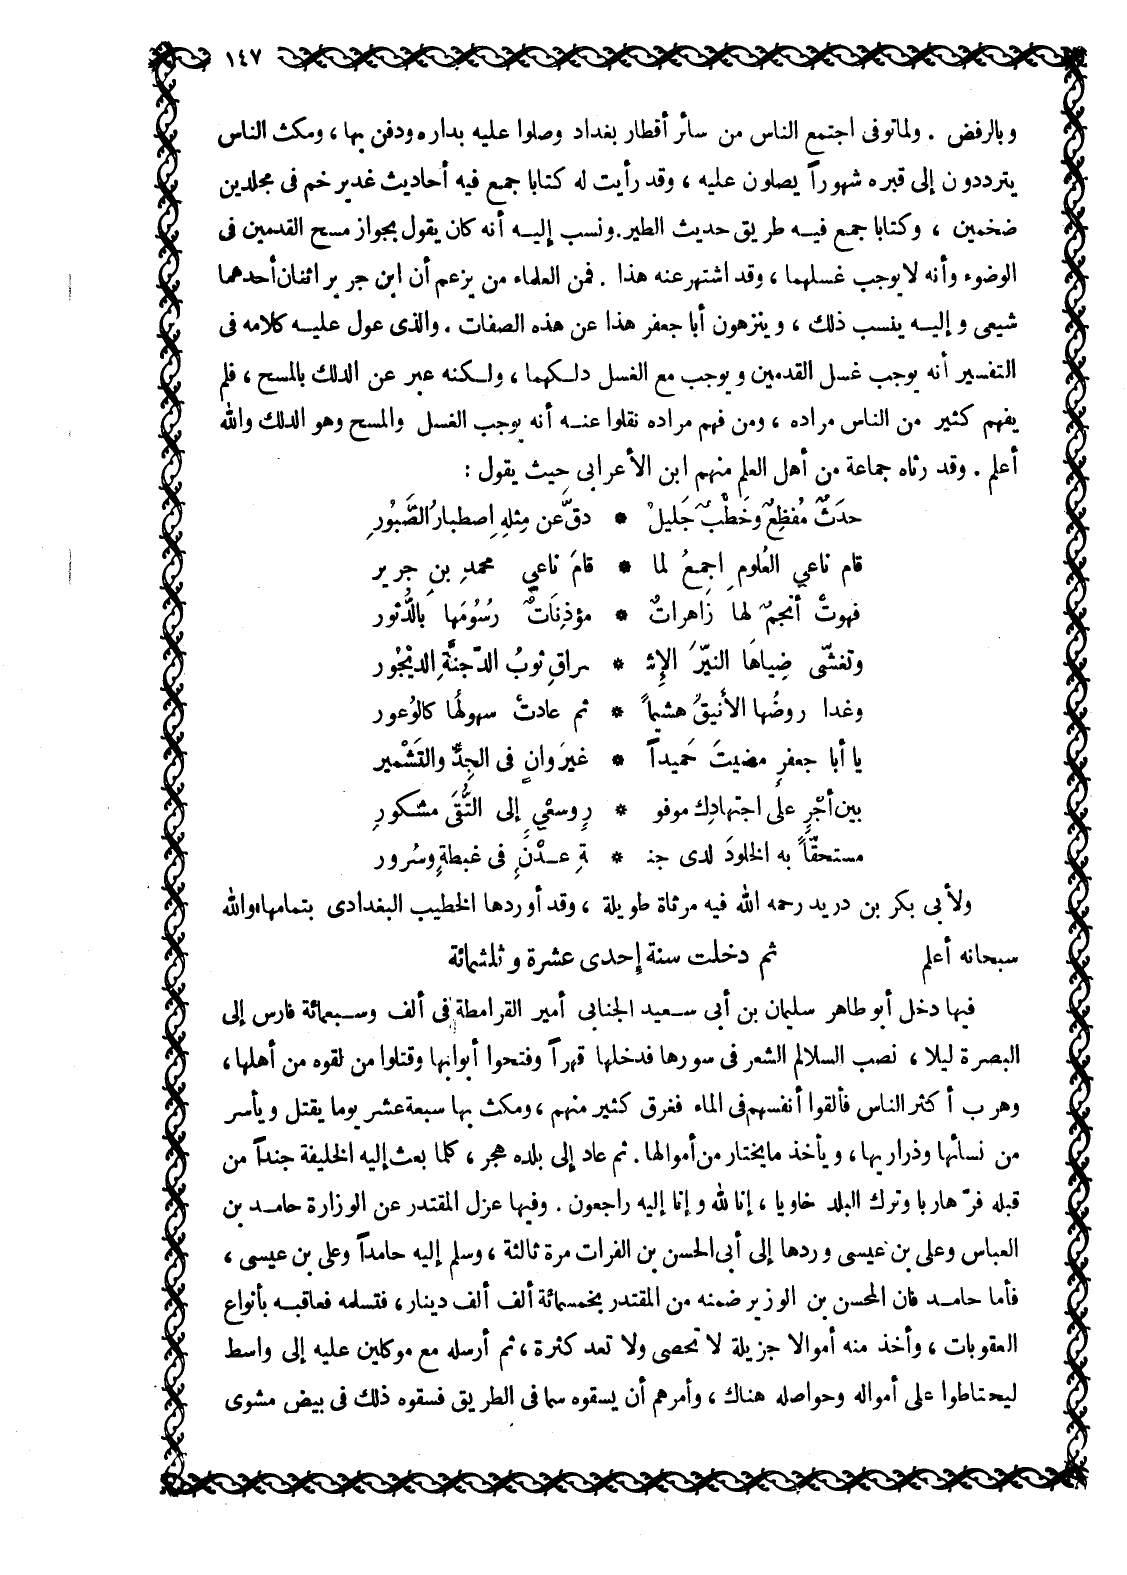 ١٤٧
وبالرفض . ولما توفى اجتمع الناس من سائر أقطار بغداد وصلوا عليه بداره ودفن بها ، ومكث الناس
يترددون إلى قبره شهوراً يصلون عليه ، وقد رأيت له كتابا جمع فيه أحاديث غدير خم فى مجلدين
ضخمين ، وكتابا جمع فيه طريق حديث الطير . ونسب إليه أنه كان يقول بجواز مسح القدمين فى
الوضوء وأنه لا يوجب غسلهما ، وقد اشتهر عنه هذا . فمن العلماء من يزعم أن ابن جرير اثنان أحدهما
شيعى وإليه ينسب ذلك ، وينزهون أبا جعفر هذا عن هذه الصفات . والذى عول عليه كلامه فى
التفسير أنه يوجب غسل القدمين ويوجب مع الغسل دلكهما ، ولكنه عبر عن الدلك بالمسح ، فلم
يفهم كثير من الناس مراده ، ومن فهم مراده نقلوا عنه أنه يوجب الغسل والمسح وهو الدلك والله
أعلم . وقد رثاه جماعة من أهل العلم منهم ابن الأعرابى حيث يقول :
حدَثٌ مُفظِعٌ وخَطْبٌ جَليلٌ * دقَّ عن مِثلهِ اِصطبارُ الصَّبُورِ
قام ناعي العُلومِ اِجمعُ لما * قامَ ناعي محمدِ بنِ جريرِ
فهوتْ أنجمٌ لها زَاهراتٌ * مؤذِنَاتٌ رُسُومَها بالدُّثورِ
وتغشّى ضِياهَا النيّرَ الإِشـ * ـراقِ ثوبُ الدّجنَّةِ الديْجُورِ
وغدا روضُها الأنيقُ هشيماً * ثم عادتْ سهولُها كالوُعورِ
يا أبا جعفرٍ مضيتَ حَميداً * غيرَ وانٍ فى الجِدِّ والتَشْميرِ
بين أجْرٍ علَى اجتهادِك موفو * رٍ وسعْيٍ إلى التُّقَى مشكورِ
مستحقّاً به الخلودَ لدى جنـ * ـةِ عدْنٍ فى غبطةٍ وسُرورِ
ولأبى بكر بن دريد رحمه الله فيه مرثاة طويلة ، وقد أوردها الخطيب البغدادى بتمامها ، والله
سبحانه أعلم ثم دخلت سنة إحدى عشرة وثلثمائة
فيها دخل أبو طاهر سليمان بن أبى سعيد الجنابى أمير القرامطة فى ألف وسبعمائة فارس إلى
البصرة ليلا ، نصب السلالم الشعر فى سورها فدخلها قهراً وفتحوا أبوابها وقتلوا من لقوه من أهلها ،
وهرب أكثر الناس فألقوا أنفسهم فى الماء فغرق كثير منهم ، ومكث بها سبعة عشر يوما يقتل ويأسر
من نسائها وذراريها ، ويأخذ ما يختار من أموالها . ثم عاد إلى بلده هجر ، كلما بعث إليه الخليفة جنداً من
قبله فرّ هاربا وترك البلد خاويا ، إنا لله وإنا إليه راجعون . وفيها عزل المقتدر عن الوزارة حامد بن
العباس وعلى بن عيسى وردها إلى أبى الحسن بن الفرات مرة ثالثة ، وسلم إليه حامداً وعلى بن عيسى ،
فأما حامد فان المحسن بن الوزير ضمنه من المقتدر بخمسمائة ألف ألف دينار ، فتسلمه فعاقبه بأنواع
العقوبات ، وأخذ منه أموالا جزيلة لا تحصى ولا تعد كثرة ، ثم أرسله مع موكلين عليه إلى واسط
ليحتاطوا على أمواله وحواصله هناك ، وأمرهم أن يسقوه سما فى الطريق فسقوه ذلك فى بيض مشوى